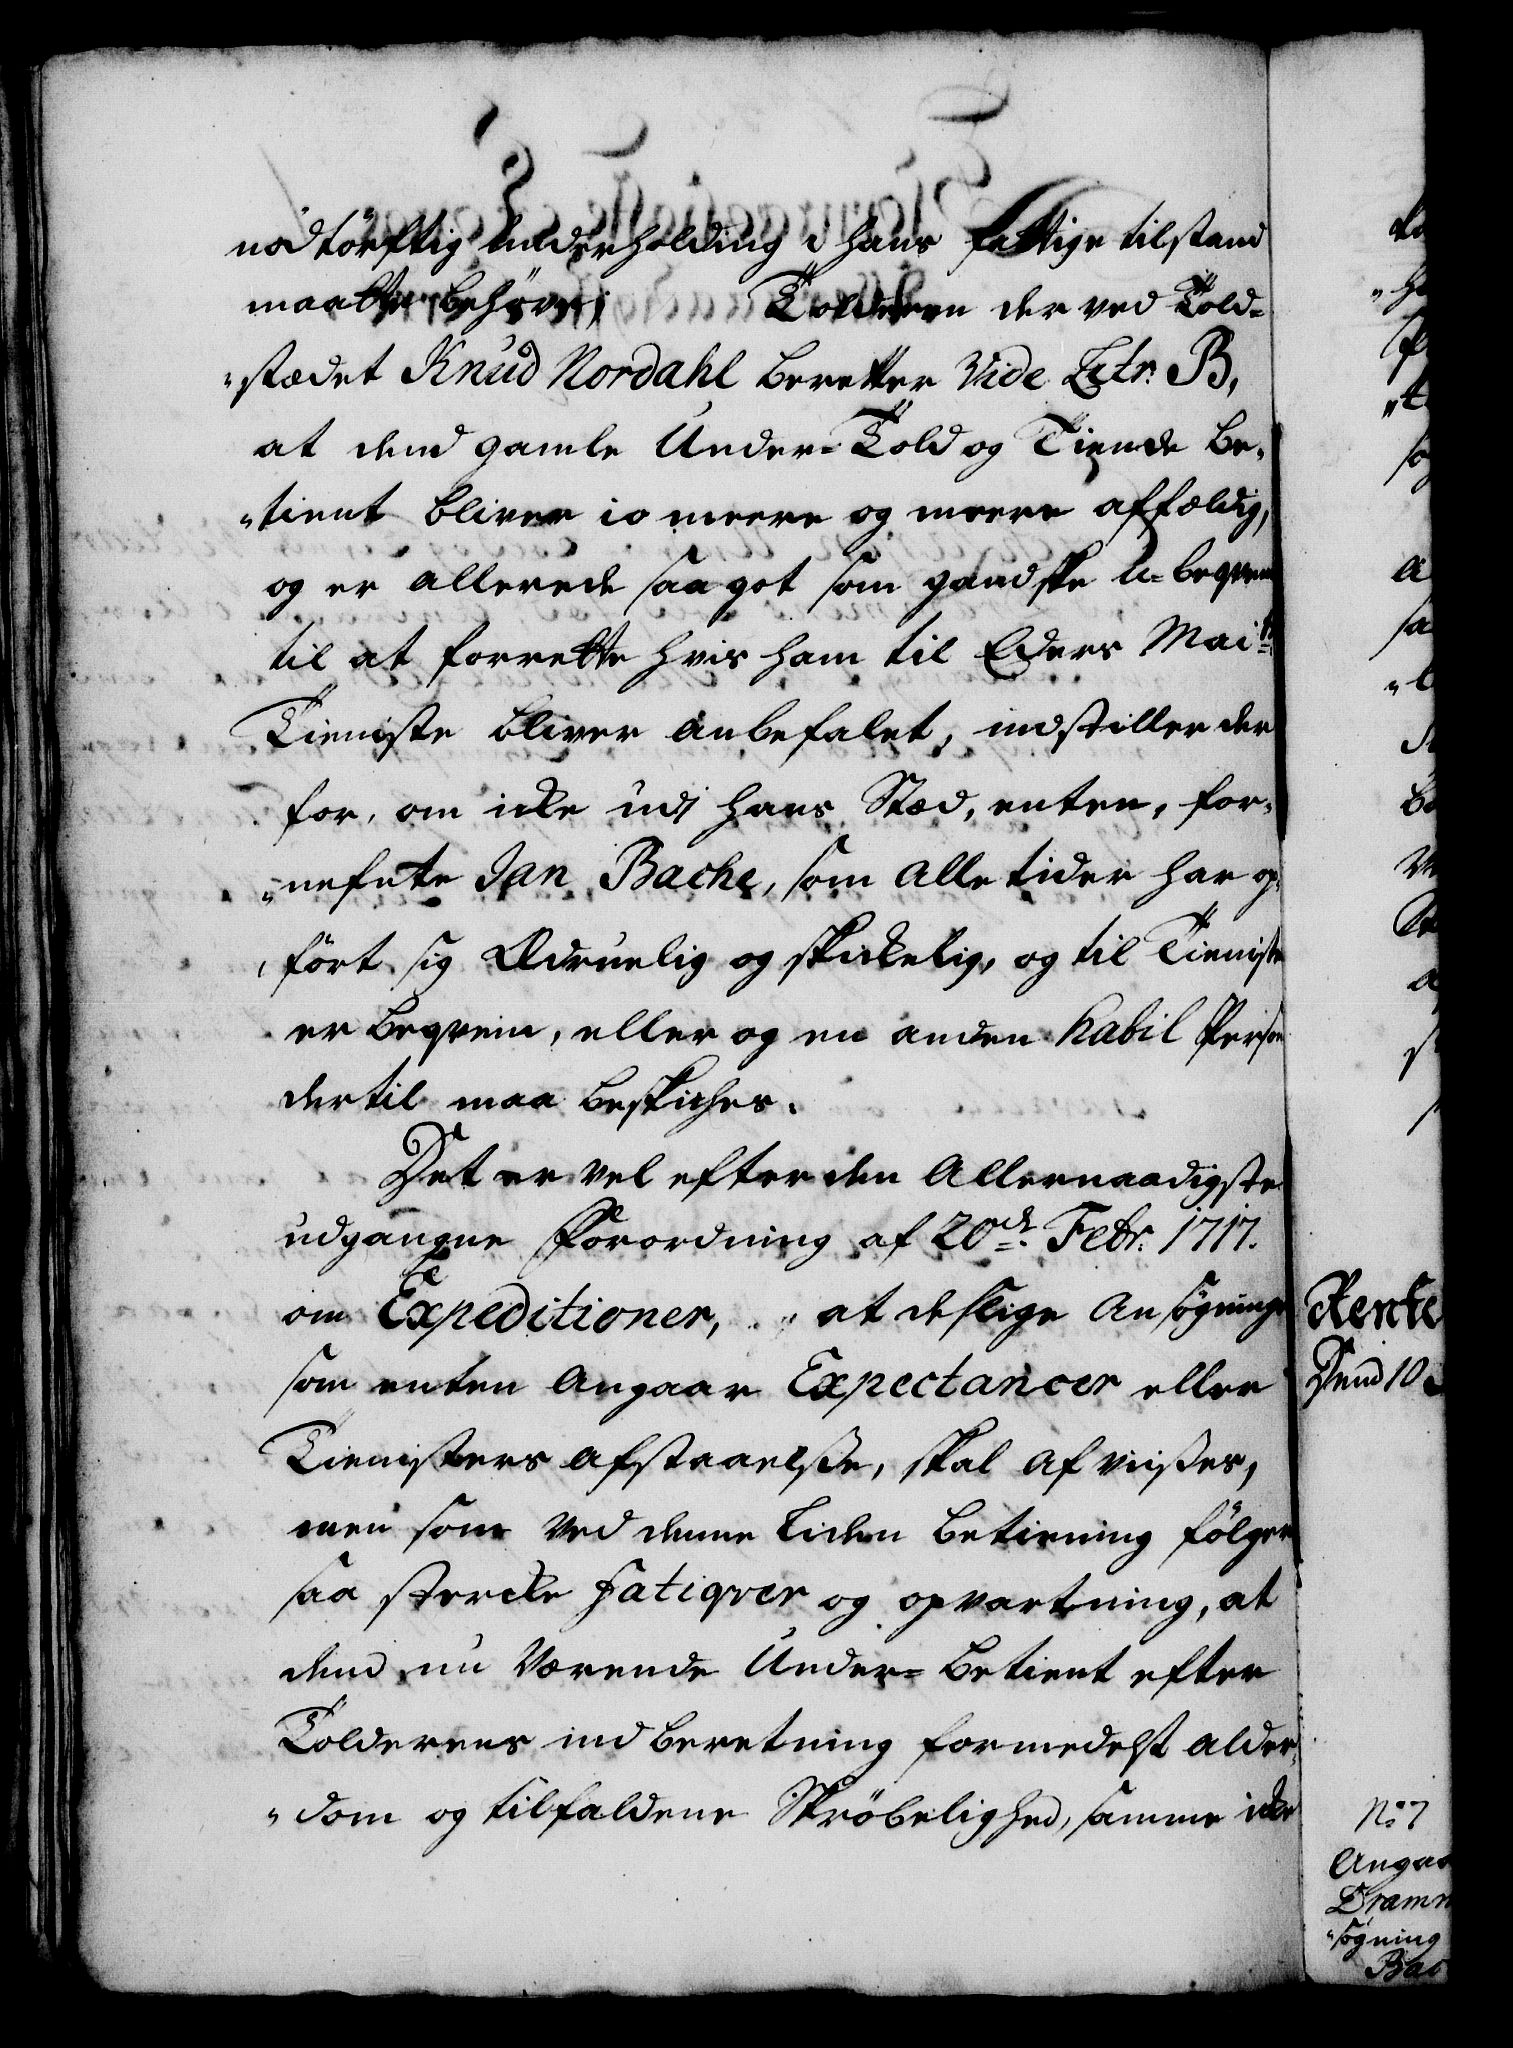 nødtörftig Underholding i hans fattige tilstand
maatte behøve; Tolderen der ved Told-
„stædet Knud Nordahl beretter Vide Litr: B,
at dend gamle Under-Told og Tiende be-
„tient bliver io meere og meere affældig,
og er allerede saa got som gandske U-beqvem
til at forrette hvis ham til Eders Mai:ts
Tieniste bliver anbefalet, indstiller der
for, om icke udj hans Stæd, enten, for-
„nefnte Jan Bache, som alle tider har op-
„fört sig Ædruelig og skickelig, og til Tieniste
er beqvem, eller og en anden habil Person
dertil maa beskickes.
Det er vel efter den Allernaadigste
udgangne Forordning af 20de Febr: 1717.
om Expeditioner, at deslige Ansögninger
som enten Angaar Expectancer eller
Tienisters afstaaelsse, skal afviisses,
men som ved denne liden betiening fölger
saa stercke Fatiqver og opvartning, at
dend nu værende Under-betient efter
Tolderens ind beretning formedelst alder-
„dom og tilfaldene Skröbelighed, samme icke
Rente
Dend 10
No 7
Angaa
Dramm
„søgning
Bac